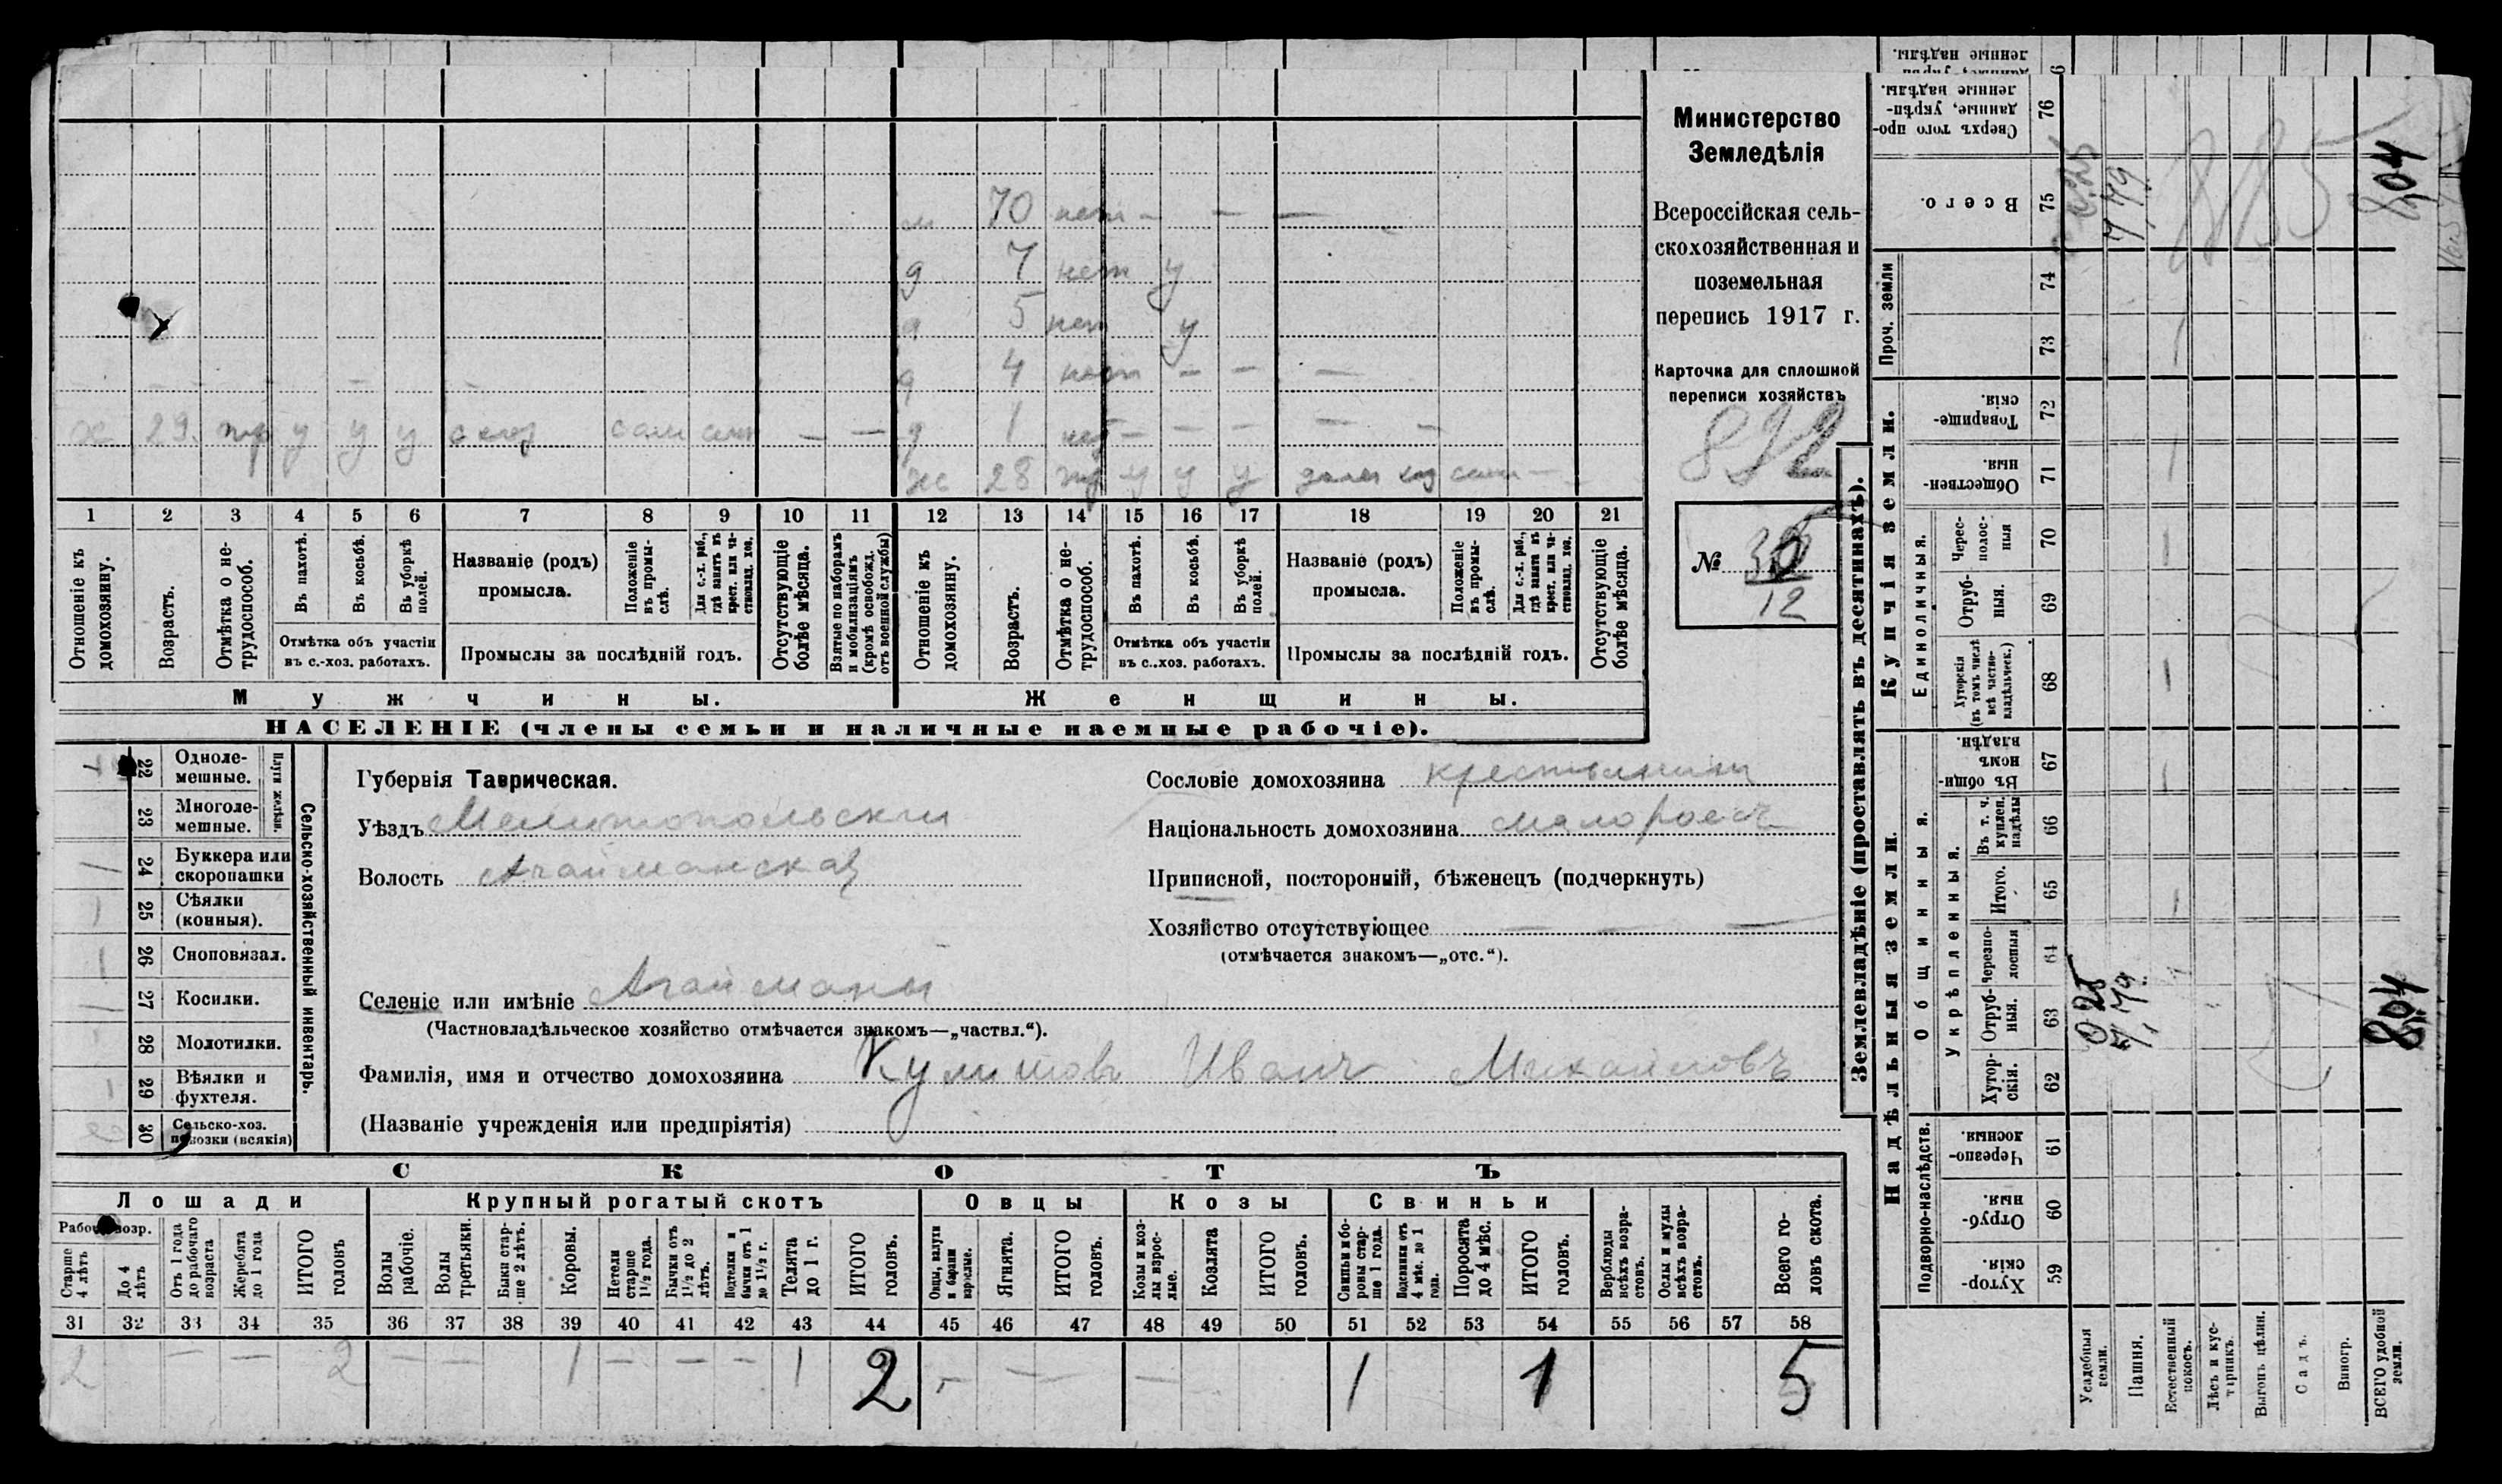 Министерство
Земледѣлія
Всероссійская сель-
скохозяйственная и
поземельная
перепись 1917 г.
Карточка для сплошной
переписи хозяйствъ
№
12
м 70 нет — — —
д 7 нет у
д 5 нет у
д 4 нет — — —
29 у у у
д 1 нет — — — — —
ж 28 у у у
1 2 3 4 5 6 7 8 9 10 11 12 13 14 15 16 17 18 19 20 21
Отношеніе къ домохозяину.
Возрастъ.
Отмѣтка о не-трудоспособ.
Въ пахотѣ.
Въ косьбѣ.
Въ уборкѣ полей.
Отмѣтка объ участіи
въ с.-хоз. работахъ.
Названіе (родъ)
промысла.
Положеніе въ промы-слѣ.
Для с.-х. раб., гдѣ занятъ въ крест. или ча-стновлад. хоз.
Промыслы за послѣдній годъ.
Отсутствующіе болѣе мѣсяца.
Взятые по наборамъ и мобилизаціямъ (кромѣ освобожд. отъ военной службы)
Отношеніе къ домохозяину.
Возрастъ.
Отмѣтка о не-трудоспособ.
Въ пахотѣ.
Въ косьбѣ.
Въ уборкѣ полей.
Отмѣтка объ участіи
въ с..хоз. работахъ.
Названіе (родъ)
промысла.
Положеніе въ промы-слѣ.
Для с.-х. раб., гдѣ занятъ въ крест. или ча-стновлад. хоз.
Промыслы за послѣдній годъ.
Отсутствующіе болѣе мѣсяца.
Мужчины.
Женщины.
НАСЕЛЕНІЕ (члены семьи и наличные наемные рабочіе).
22 Одноле-мешные.
23 Многоле-мешные.
Плуги желѣзн.
24 Буккера или скоропашки
25 Сѣялки (конныя).
26 Сноповязал.
27 Косилки.
28 Молотилки.
29 Вѣялки и фухтеля.
30 Сельско-хоз. повозки (всякія)
Сельско-хозяйственный инвентарь.
Губернія Таврическая.
Уѣздъ Мелитопольский
Волость Агайманская
Селеніе или имѣніе Агайманы
(Частновладѣльческое хозяйство отмѣчается знакомъ—„частвл.“).
Фамилія, имя и отчество домохозяина Кулишовъ Иванъ Михаиловъ
(Названіе учрежденія или предпріятія)
Сословіе домохозяина крестьянинъ
Національность домохозяина малороссъ
Приписной, посторонній, бѣженецъ (подчеркнуть)
Хозяйство отсутствующее — — —
(отмѣчается знакомъ—„отс.“).
СКОТЪ
Лошади
Рабоч. возр.
Старше 4 лѣтъ
До 4 лѣтъ
Отъ 1 года до рабочаго возраста
Жеребята до 1 года
ИТОГО головъ
Крупный рогатый скотъ
Волы рабочіе.
Волы третьяки.
Быки стар-ше 2 лѣтъ.
Коровы.
Нетели старше 1½ года.
Бычки отъ 1½ до 2 лѣтъ.
Подтелки и бычки отъ 1 до 1½ г.
Телята до 1 г.
ИТОГО головъ.
Овцы
Овцы, валухи и бараны взрослые.
Ягнята.
ИТОГО головъ.
Козы
Козы и коз-лы взрос-лые.
Козлята
ИТОГО головъ.
Свиньи
Свиньи и бо-ровы стар-ше 1 года.
Подсвинки отъ 4 мѣс. до 1 года.
Поросята до 4 мѣс.
ИТОГО головъ.
Верблюды всѣхъ возра-стовъ.
Ослы и мулы всѣхъ возра-стовъ.
Всего го-ловъ скота.
31 32 33 34 35 36 37 38 39 40 41 42 43 44 45 46 47 48 49 50 51 52 53 54 55 56 57 58
2 — — 2 — — 1 — — — 1 2 — — — 1 1 5
Землевладѣніе (проставлять въ десятинахъ).
Купчія земли.
Надѣльныя земли.
Сверхъ того про-данные, укрѣп-ленные надѣлы. 76
Всего. 75
Проч. земли 74 73
Товарище-скія. 72
Обществен-ныя. 71
Единоличныя.
Черес-полос-ныя 70
Отруб-ныя. 69
Хуторскія (въ томъ числѣ всѣ частно-владѣльческ.) 68
Общинныя.
Въ общи-номъ владѣн. 67
Укрѣпленныя.
Въ т. ч. куплен. надѣлы 66
Итого. 65
Черезпо-лосныя 64
Отруб-ныя. 63
Хутор-скія. 62
Подворно-наслѣдств.
Черезпо-лосныя. 61
Отруб-ныя. 60
Хутор-скія. 59
Усадебныя земли.
Пашня.
Естественный покосъ.
Лѣсъ и кус-тарникъ.
Выгонъ цѣлин.
Садъ.
Виногр.
ВСЕГО удобной земли.
7,79
8,04
025
7,79
8,04